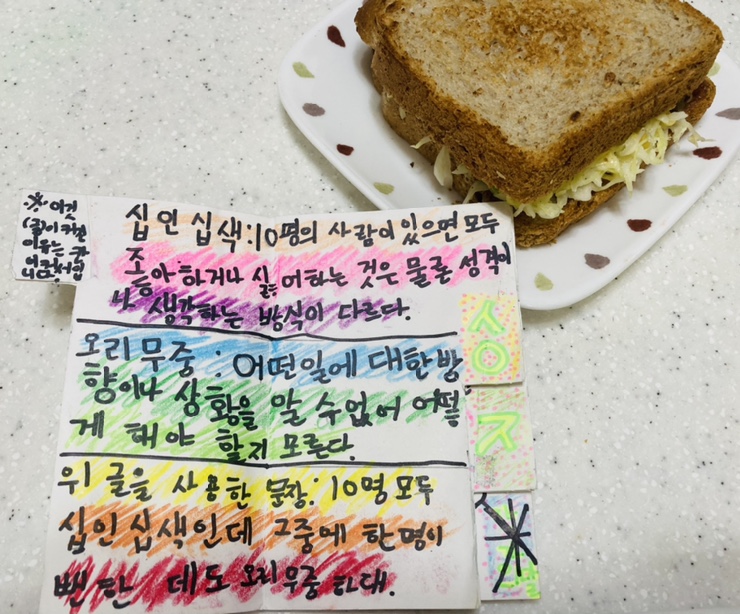 ※ 이것
(글)이 커진
이유는
십인십색:10명의 사람이 있으면 모두
좋아하거나 싫어하는 것은 물론 성격이
나 생각하는 방식이 다르다.
오리무중 : 어떤일에 대한 방
향이나 상황을 알 수 없어 어떻
게 해야 할지 모른다.
위 글을 사용한 문장: 10명 모두
십인십색인데 그중에 한 명이
뻔한 데도 오리무중 하대.